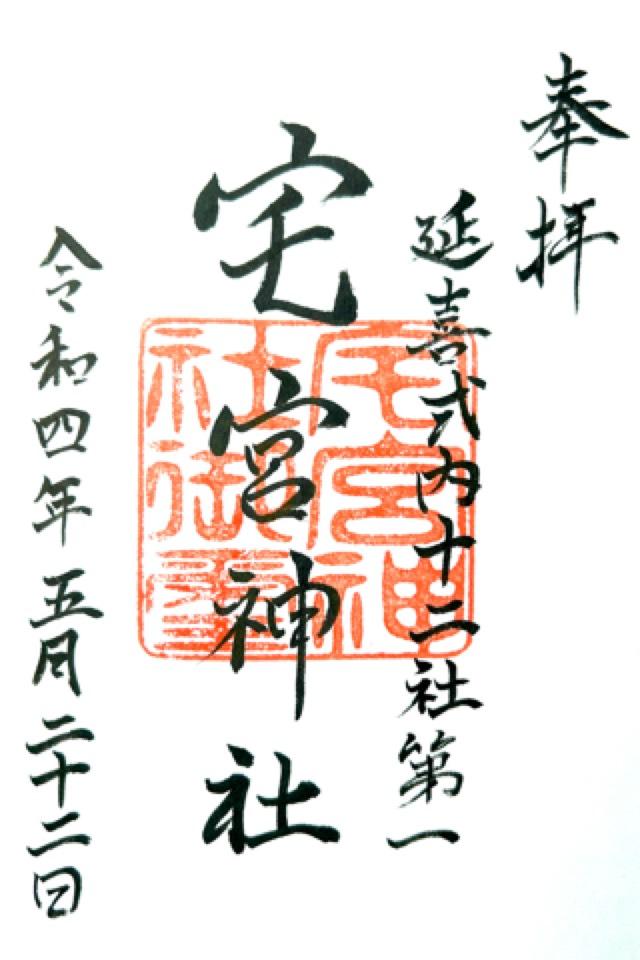 奉拝
延喜式内十二社第一
宅宮神社
宅宮神
社御璽
令和四年五月二十二日